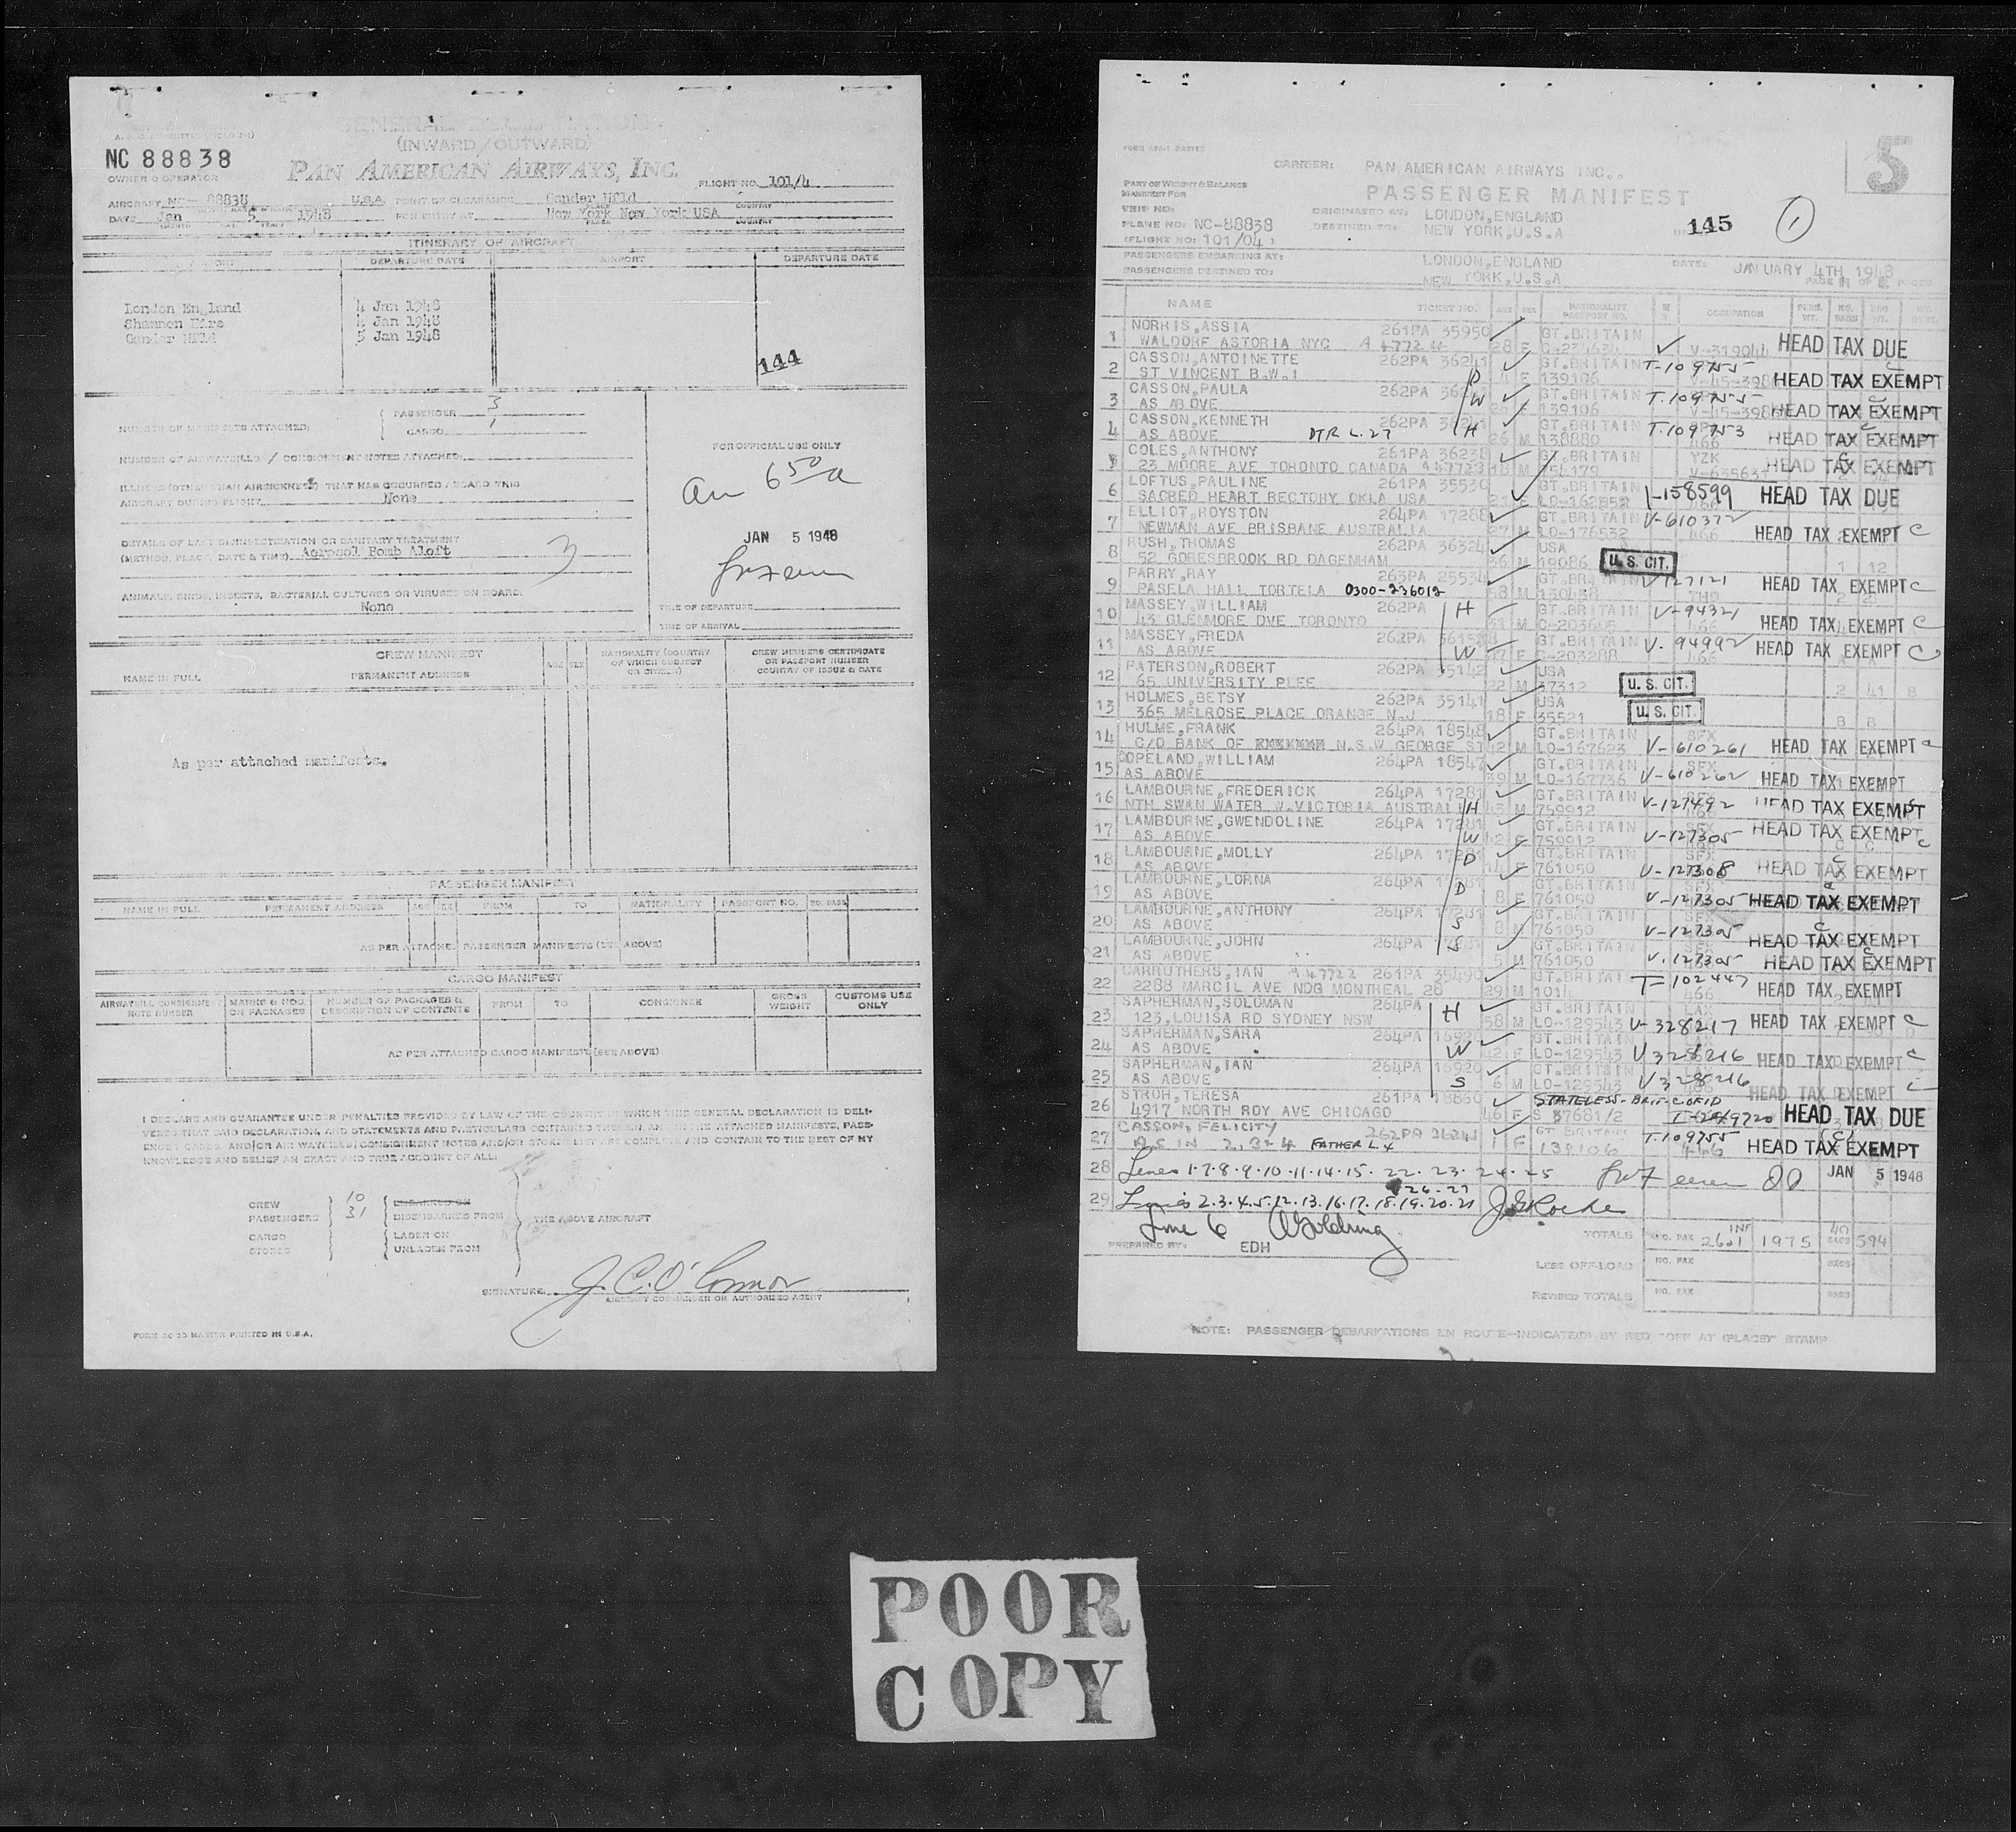 GENERAL DECLARATION
(INWARD/OUTWARD)
NC 88838
PAN AMERICAN AIRWAYS, INC.
OWNER OR OPERATOR
FLIGHT NO. 101/4
AIRCRAFT NC- 88838 U.S.A. POINT OF CLEARANCE Gander Nfld
PLACE COUNTRY
DATE Jan 5 1948 FOR ENTRY AT New York New York USA
(MONTH DAY YEAR) PLACE COUNTRY
ITINERARY OF AIRCRAFT
AIRPORT DEPARTURE DATE AIRPORT DEPARTURE DATE
London England 4 Jan 1948
Shannon Eire 4 Jan 1948
Gander Nfld 5 Jan 1948
144
NUMBER OF MANIFESTS ATTACHED: PASSENGER 3
CARGO 1
NUMBER OF AIRWAYBILLS / CONSIGNMENT NOTES ATTACHED:
ILLNESS (OTHER THAN AIRSICKNESS) THAT HAS OCCURRED ABOARD THIS
AIRCRAFT DURING FLIGHT None
DETAILS OF LAST DISINSECTIZATION OR SANITARY TREATMENT
(METHOD, PLACE, DATE & TIME) Aerosol Bomb Aloft
3
ANIMALS, BIRDS, INSECTS, BACTERIAL CULTURES OR VIRUSES ON BOARD:
None
FOR OFFICIAL USE ONLY
arr 6 50 a
JAN 5 1948
TIME OF DEPARTURE
TIME OF ARRIVAL
CREW MANIFEST
NAME IN FULL PERMANENT ADDRESS AGE SEX NATIONALITY (COUNTRY OF WHICH SUBJECT OR CITIZEN) CREW MEMBERS CERTIFICATE OR PASSPORT NUMBER COUNTRY OF ISSUE & DATE
As per attached manifests.
PASSENGER MANIFEST
NAME IN FULL PERMANENT ADDRESS AGE SEX FROM TO NATIONALITY PASSPORT NO. NO. BAGS
AS PER ATTACHED PASSENGER MANIFESTS (SEE ABOVE)
CARGO MANIFEST
AIRWAYBILL CONSIGNMENT NOTE NUMBER MARKS & NOS. ON PACKAGES NUMBER OF PACKAGES & DESCRIPTION OF CONTENTS FROM TO CONSIGNEE GROSS WEIGHT CUSTOMS USE ONLY
AS PER ATTACHED CARGO MANIFESTS (SEE ABOVE)
I DECLARE AND GUARANTEE UNDER PENALTIES PROVIDED BY LAW OF THE COUNTRY IN WHICH THIS GENERAL DECLARATION IS DELI-
VERED THAT SAID DECLARATION, AND STATEMENTS AND PARTICULARS CONTAINED THEREIN, AND IN THE ATTACHED MANIFESTS, PASS-
ENGER CARGO, AND/OR AIR WAYBILLS CONSIGNMENT NOTES AND/OR STORES LIST ARE COMPLETE AND CONTAIN TO THE BEST OF MY
KNOWLEDGE AND BELIEF AN EXACT AND TRUE ACCOUNT OF ALL:
CREW 10 EMBARKED ON
PASSENGERS 31 DISEMBARKED FROM THE ABOVE AIRCRAFT
CARGO LADEN ON
STORES UNLADEN FROM
SIGNATURE J. C. O'Connor
AIRCRAFT COMMANDER OR AUTHORIZED AGENT
5
CARRIER: PAN AMERICAN AIRWAYS INC..
PART OF WEIGHT & BALANCE
MANIFEST FOR
PASSENGER MANIFEST
TRIP NO:
ORIGINATED AT: LONDON, ENGLAND
PLANE NO: NC-88838 DESTINED TO: NEW YORK, U.S.A
145 1
(FLIGHT NO: 101/04)
PASSENGERS EMBARKING AT: LONDON, ENGLAND
PASSENGERS DESTINED TO: NEW YORK, U.S.A
DATE: JANUARY 4TH 1948
NAME TICKET NO. AGE SEX NATIONALITY PASSPORT NO. OCCUPATION PERS. WT. NO. BAGS BAG WT.
1 NORRIS, ASSIA 261PA 35950 GT.BRITAIN
WALDORF ASTORIA NYC 28 F V-319044 HEAD TAX DUE
2 CASSON, ANTOINETTE 262PA 36241 GT.BRITAIN T-109755
ST VINCENT B.W.I D 4 F 139106 HEAD TAX EXEMPT
3 CASSON, PAULA 262PA GT.BRITAIN T.109755
AS ABOVE W 26 F 139106 HEAD TAX EXEMPT
4 CASSON, KENNETH 262PA GT.BRITAIN T.109753
AS ABOVE DTR L.27 H 26 M 138880 466 HEAD TAX EXEMPT
5 COLES, ANTHONY 261PA 36238 GT.BRITAIN YZK
23 MOORE AVE TORONTO CANADA 18 M 54179 HEAD TAX EXEMPT
6 LOFTUS, PAULINE 261PA 35530 GT.BRITAIN
SACRED HEART RECTORY OKLA USA 21 F LO-162852 I-158599 HEAD TAX DUE
7 ELLIOT, ROYSTON 264PA 17288 GT.BRITAIN V-610372
NEWMAN AVE BRISBANE AUSTRALIA 27 M LO-176532 466 HEAD TAX EXEMPT C
8 RUSH, THOMAS 262PA 36324 USA
52 GORESBROOK RD DAGENHAM 36 M 19086 U.S. CIT. 1 12
9 PARRY, RAY 263PA 25534 GT.BRITAIN V127121
PASELA HALL TORTELA 0300-236012 58 M 130458 HEAD TAX EXEMPT C
10 MASSEY, WILLIAM 262PA H GT.BRITAIN V-94321
43 GLENMORE DVE TORONTO 31 M C-203605 466 HEAD TAX EXEMPT C
11 MASSEY, FREDA 262PA GT.BRITAIN V-94992
AS ABOVE W F C-203288 466 HEAD TAX EXEMPT C
12 PATERSON, ROBERT 262PA 35142 USA
65 UNIVERSITY PLEE 22 M 37312 U.S. CIT. 2 41
13 HOLMES, BETSY 262PA 35141 USA
365 MELROSE PLACE ORANGE N.J 18 F 35521 U.S. CIT.
14 HULME, FRANK 264PA 18548 GT.BRITAIN SFX
C/O BANK OF N.S.W GEORGE ST 42 M LO-167623 V-610261 HEAD TAX EXEMPT
15 COPELAND, WILLIAM 264PA 18547 GT.BRITAIN SFX
AS ABOVE 39 M LO-167736 V-610262 HEAD TAX EXEMPT
16 LAMBOURNE, FREDERICK 264PA 17281 GT.BRITAIN
NTH SWAN WATER W.VICTORIA AUSTRALI H 43 M 759912 V-127492 HEAD TAX EXEMPT
17 LAMBOURNE, GWENDOLINE 264PA 17281 GT.BRITAIN
AS ABOVE W 42 F 759912 V-127305 HEAD TAX EXEMPT
18 LAMBOURNE, MOLLY 264PA 17281 GT.BRITAIN SFX
AS ABOVE D 14 F 761050 V-127308 HEAD TAX EXEMPT
19 LAMBOURNE, LORNA 264PA GT.BRITAIN SFX
AS ABOVE D 8 F 761050 V-127305 HEAD TAX EXEMPT
20 LAMBOURNE, ANTHONY 264PA 17281 GT.BRITAIN SFX
AS ABOVE S 8 M 761050 V-127305 HEAD TAX EXEMPT
21 LAMBOURNE, JOHN 264PA GT.BRITAIN SFX
AS ABOVE S 5 M 761050 V.127305 HEAD TAX EXEMPT
22 CARRUTHERS, IAN A 47722 261PA 35490 GT.BRITAIN T-102447
2288 MARCIL AVE NDG MONTREAL 28 29 M 1014 466 HEAD TAX EXEMPT
23 SAPHERMAN, SOLOMAN 264PA H GT.BRITAIN LAX
123, LOUISA RD SYDNEY NSW 58 M LO-129543 V-328217 HEAD TAX EXEMPT C
24 SAPHERMAN, SARA 264PA 16920 GT.BRITAIN
AS ABOVE W 42 F LO-129543 V328216 HEAD TAX EXEMPT C
25 SAPHERMAN, IAN 264PA 16920 GT.BRITAIN LAX
AS ABOVE S 6 M LO-129543 V328216 HEAD TAX EXEMPT
26 STROH, TERESA 261PA 18860 STATELESS-BRIT-C OF ID
4917 NORTH ROY AVE CHICAGO 46 F S 37681/2 HEAD TAX DUE
27 CASSON, FELICITY 262PA 36245 GT BRITAIN T.109755
AS IN 2, 3 & 4 FATHER L.4 1 F 139106 466 HEAD TAX EXEMPT
28 Lines 1-7-8-9-10-11-14-15-22-23-24-25 JAN 5 1948
26-27
29 Lines 2.3.4.5.12.13.16.17.18.19.20.21 J. G. Roche
Line 6
PREPARED BY: EDH
TOTALS NO. PAX INF 26+1 1975 40 BAGS 594
LESS OFF-LOAD NO. PAX BAGS
REVISED TOTALS NO. PAX BAGS
NOTE: PASSENGER DEBARKATIONS EN ROUTE—INDICATE(D) BY RED "OFF AT (PLACE)" STAMP
POOR
COPY